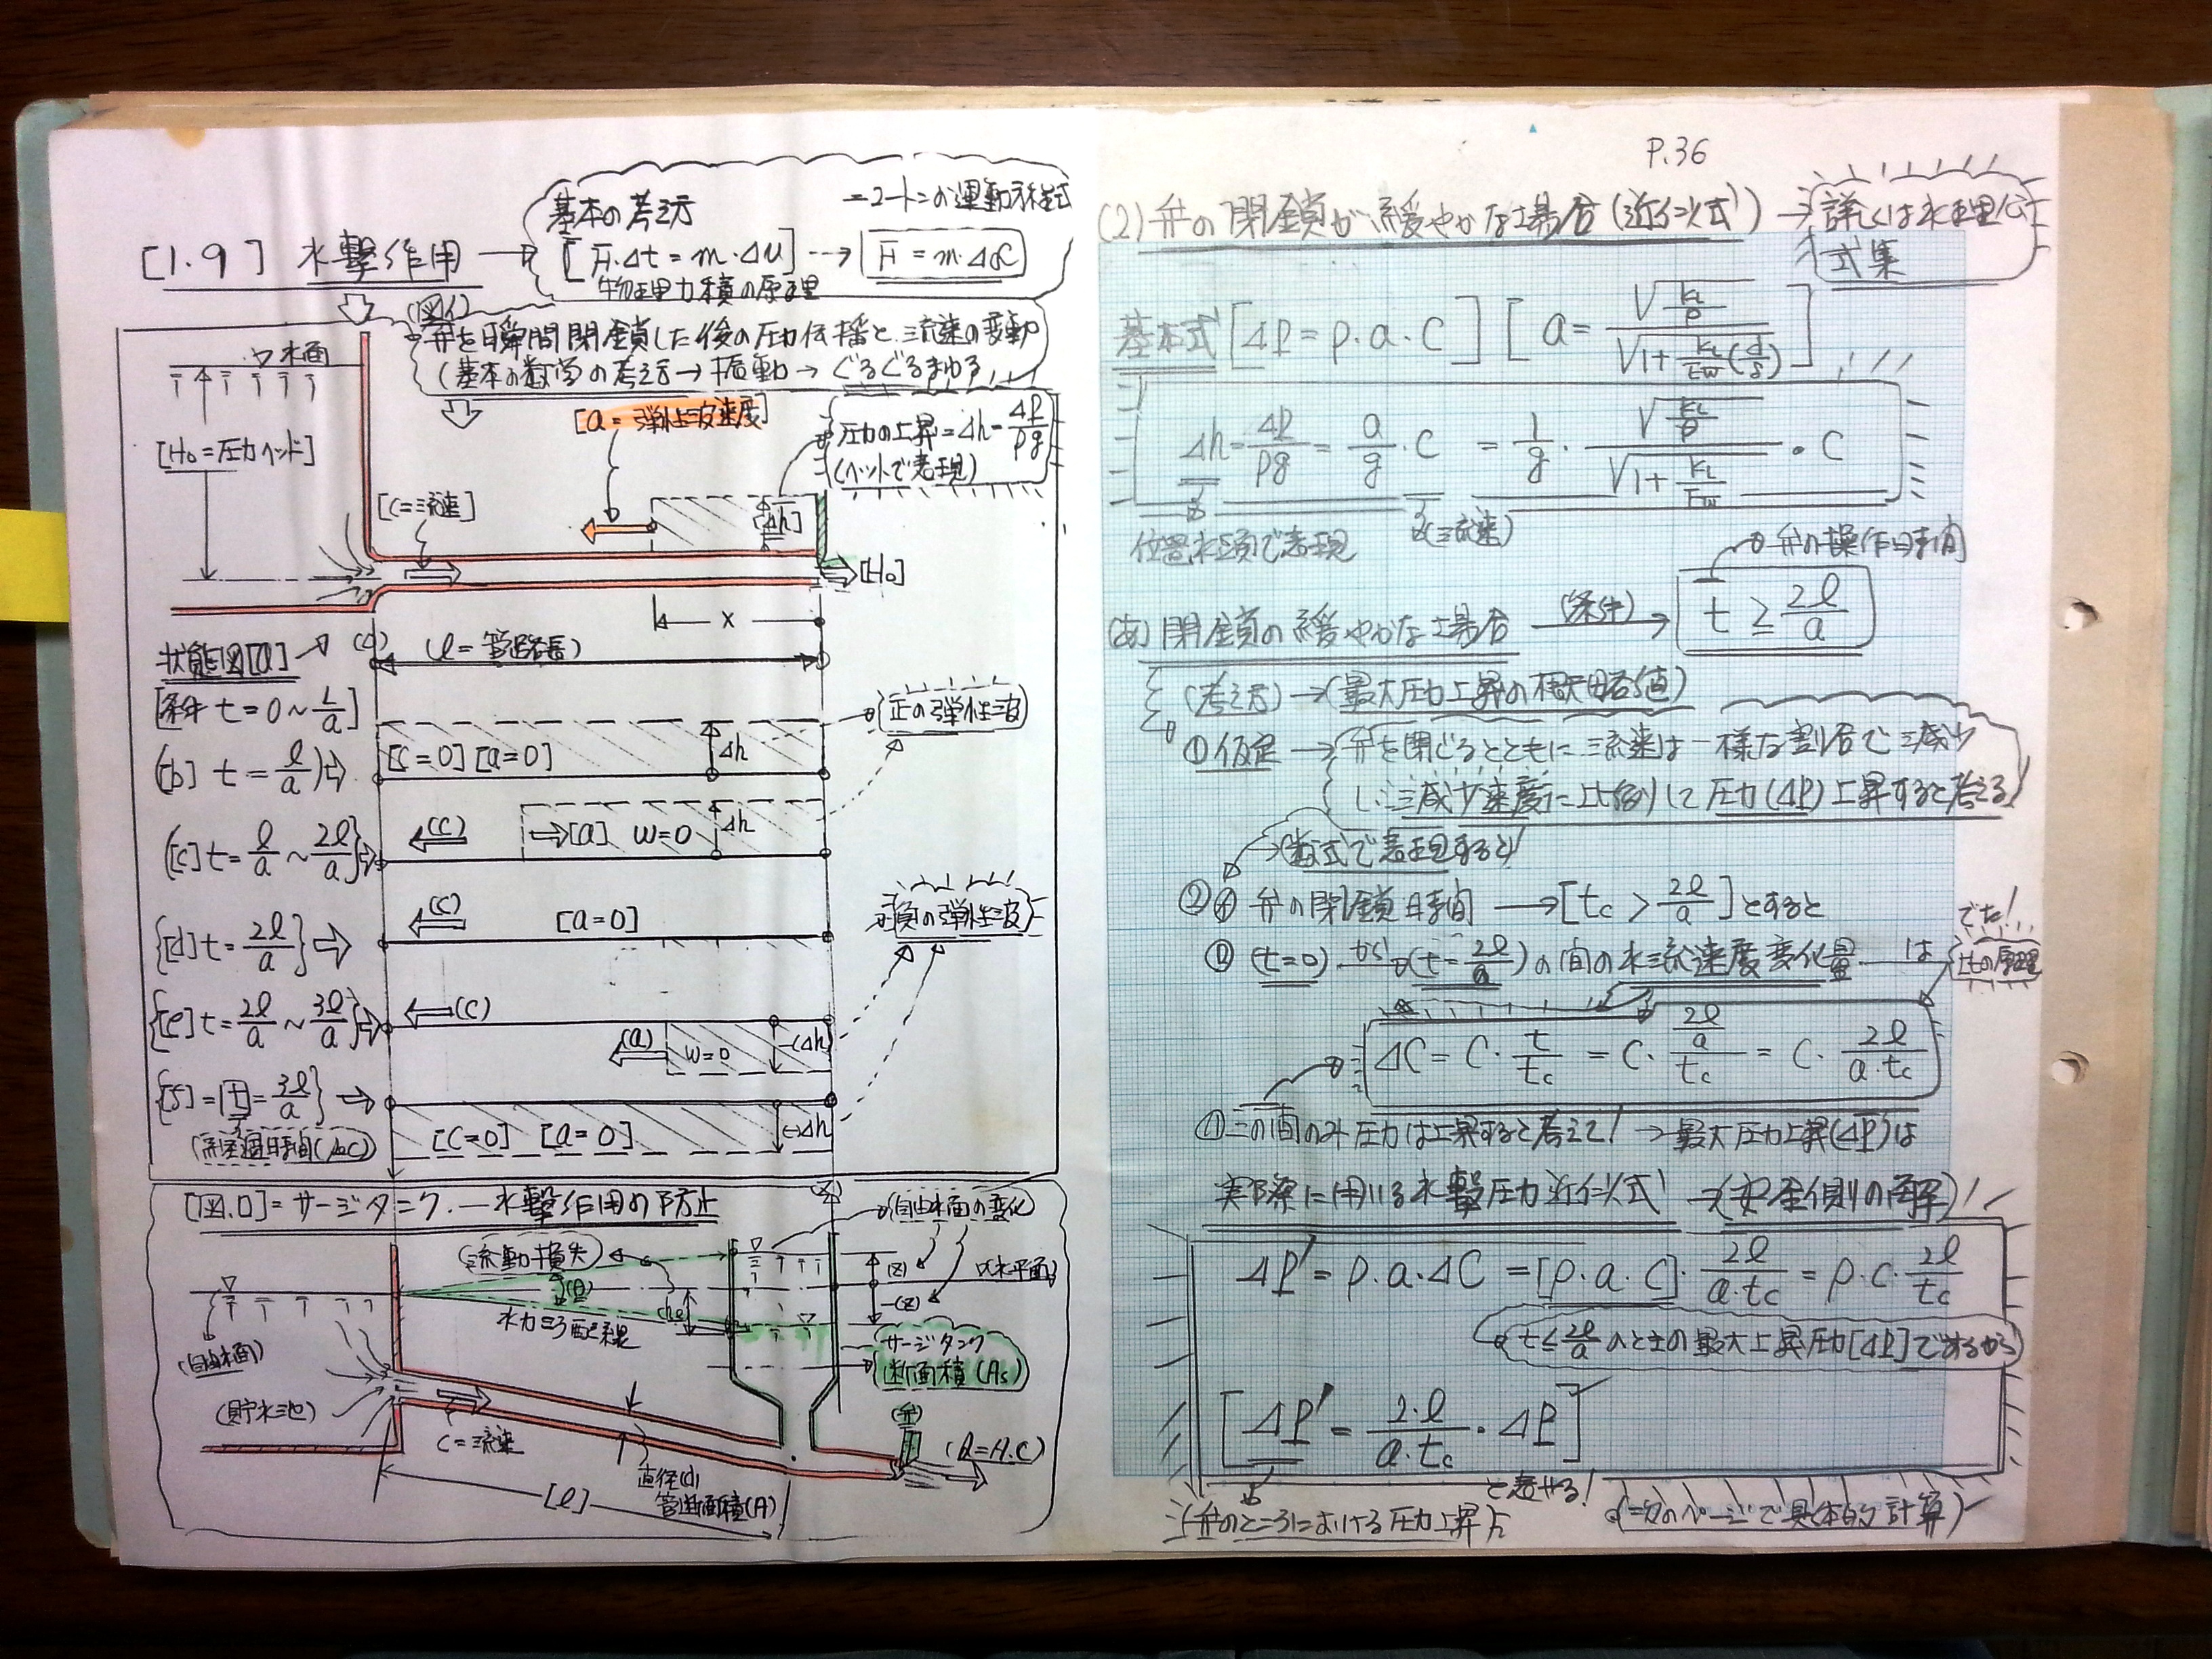 [1.9] 水撃作用
基本の考え方
ニュートンの運動方程式
[F・Δt = m・Δu] ---→ [F = m・Δα]
物理力積の原理
(図イ)
弁を瞬間閉鎖した後の圧力伝播と流速の変動
(基本の数学の考え方→振動→ぐるぐるまわる)
▽水面
[H₀=圧力ヘッド]
[a=弾性波速度]
圧力の上昇=Δh=ΔP/ρg
(ヘットで表現)
[C=流速]
[Δh]
[H₀]
x
(l=管路長)
状態図[a]
[条件 t=0~L/a]
(b] t=l/a)
[C=0] [a=0]
Δh
(正の弾性波)
([c] t=l/a~2l/a}
(C)
[a] w=0
Δh
{[d] t=2l/a}
(C)
[a=0]
負の弾性波
{[e] t=2l/a~3l/a}
(C)
(a)
w=0
-(Δh)
{[f]=[t]=3l/a}
[C=0] [a=0]
(-)Δh
[図.ロ]=サージタンク.—水撃作用の防止
(自由水面の変化)
(流動損失)
(z)
(水平面)
-(z)
水力こう配線
サージタンク
断面積(As)
(自由水面)
(貯水池)
C=流速
(弁)
(Q=A.C)
直径(d)
管断面積(A)
[l]
P.36
(2) 弁の閉鎖が緩やかな場合(近似式) → 詳しくは水理公
式集
基本式 [ΔP=ρ・a・C] [a=√(KL/ρ)/√(1+KL/Ew(d/s))]
Δh=ΔP/ρg=a/g・C=1/g・√(KL/ρ)/√(1+KL/Ew)・C
位置水頭で表現
(流速)
弁の操作時間
(あ) 閉鎖の緩やかな場合 (条件)→ t≧2l/a
(考え方)→(最大圧力上昇の概略値)
①仮定→弁を閉じるとともに流速は一様な割合で減少
し、減少速度に比例して圧力(ΔP)上昇すると考える
→数式で表現すると!
②イ 弁の閉鎖時間 →[tc>2l/a]とすると
ロ (t=0) から(t=2l/a)の間の水流速度変化量 は
でた!
比の原理
ΔC=C・t/tc=C・(2l/a)/tc=C・2l/(a・tc)
ハ この間のみ圧力は上昇すると考えて!→最大圧力上昇(ΔP)は
実際に用いる水撃圧力近似式 →(安全側の解)!
ΔP'=ρ・a・ΔC=[ρ・a・C]・2l/(a・tc)=ρ・C・2l/tc
t≦2l/aのときの最大上昇圧力[ΔP]であるから
[ΔP'=2・l/(a・tc)・ΔP]
と表せる!
(弁のところにおける圧力上昇)
(次のページで具体的計算)